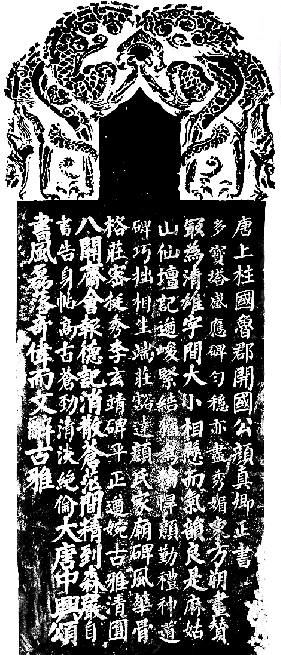 唐上柱國魯郡開國公顏真卿正書
多寶塔感應碑勻穩亦盡秀媚東方朔畫贊
最為清雄字間大小相懸而氣韻良是麻姑
山仙壇記遒峻緊結顏勤禮神道
碑巧拙相生端莊豁達顏氏家廟碑風華骨
格莊密挺秀李玄靖碑平正遒婉古雅清圓
八關齋會報德記消散蒼茫間精到森嚴自
書告身帖高古蒼勁清洪絕倫大唐中興頌
書風磊落奇偉而文辭古雅